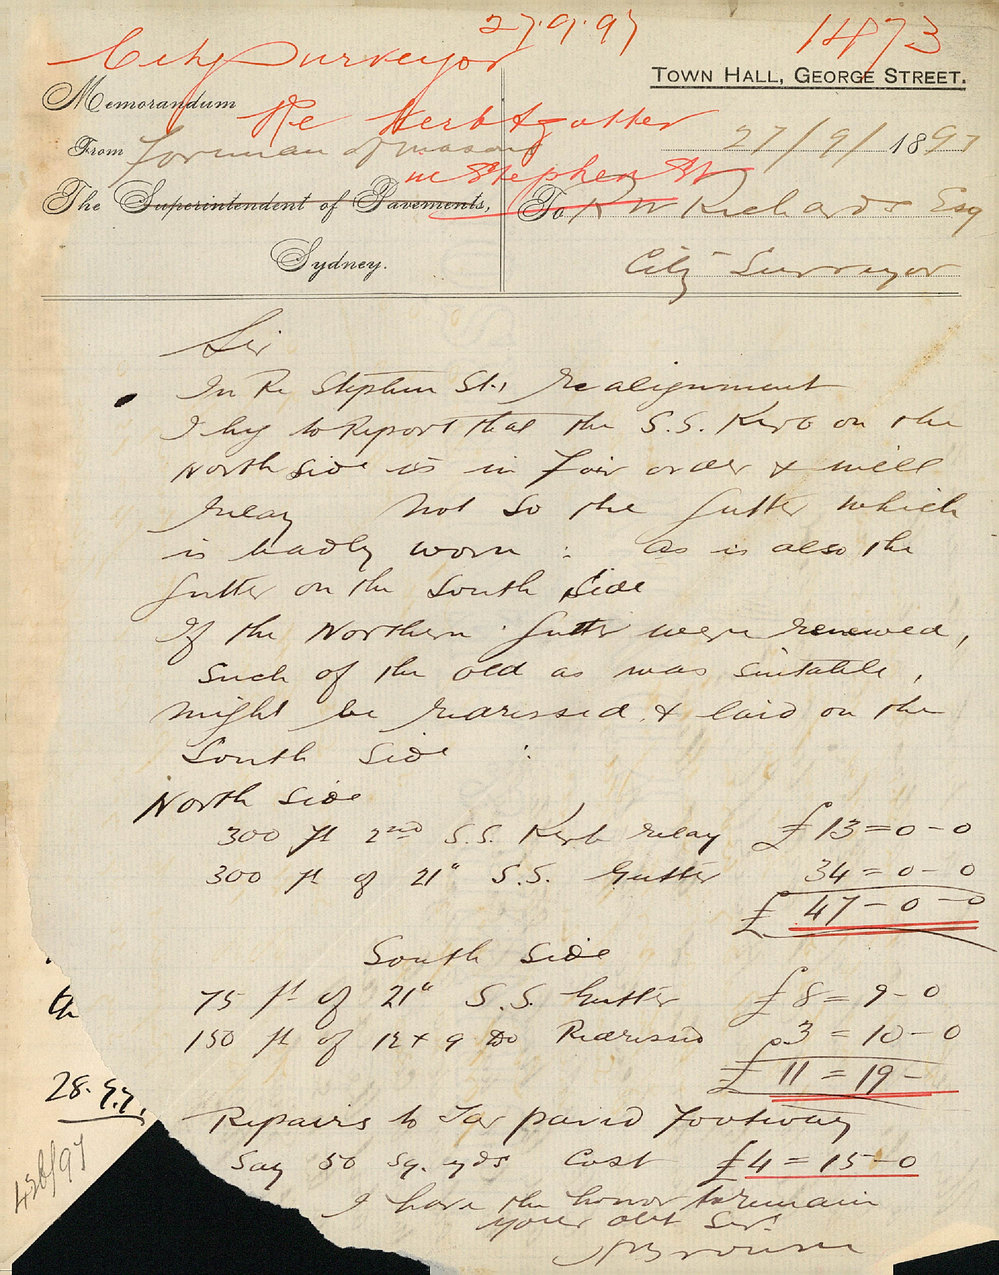 27.9.97
1473
City Surveyor
TOWN HALL, GEORGE STREET.
Memorandum
Re Kerb & gutter
in Stephen St
From Forman of masons
27/9/1897
The Superintendent of Pavements,
To R W Richards Esq
Sydney.
City Surveyor
Sir
In Re Stephen St., realignment
I beg to Report that the S.S. Kerb on the
North Side is in fair order & will
relay Not so the Gutter which
is badly worn : as is also the
Gutter on the South Side
If the Northern Gutter were renewed,
Such of the old as was suitable,
might be redressed & laid on the
South Side :
North Side
300 ft 2nd S.S. Kerb relay £13=0-0
300 ft of 21" S.S. Gutter 34=0-0
£47-0-0
South Side
75 ft of 21" S.S. Gutter £8=9-0
150 ft of 12 x 9 Do Redressed 3=10-0
£11=19-
Repairs to Tar paved footway
Say 50 sq. yds Cost £4=15-0
I have the honor to remain
your obt Ser.
Brown
28.9.97.